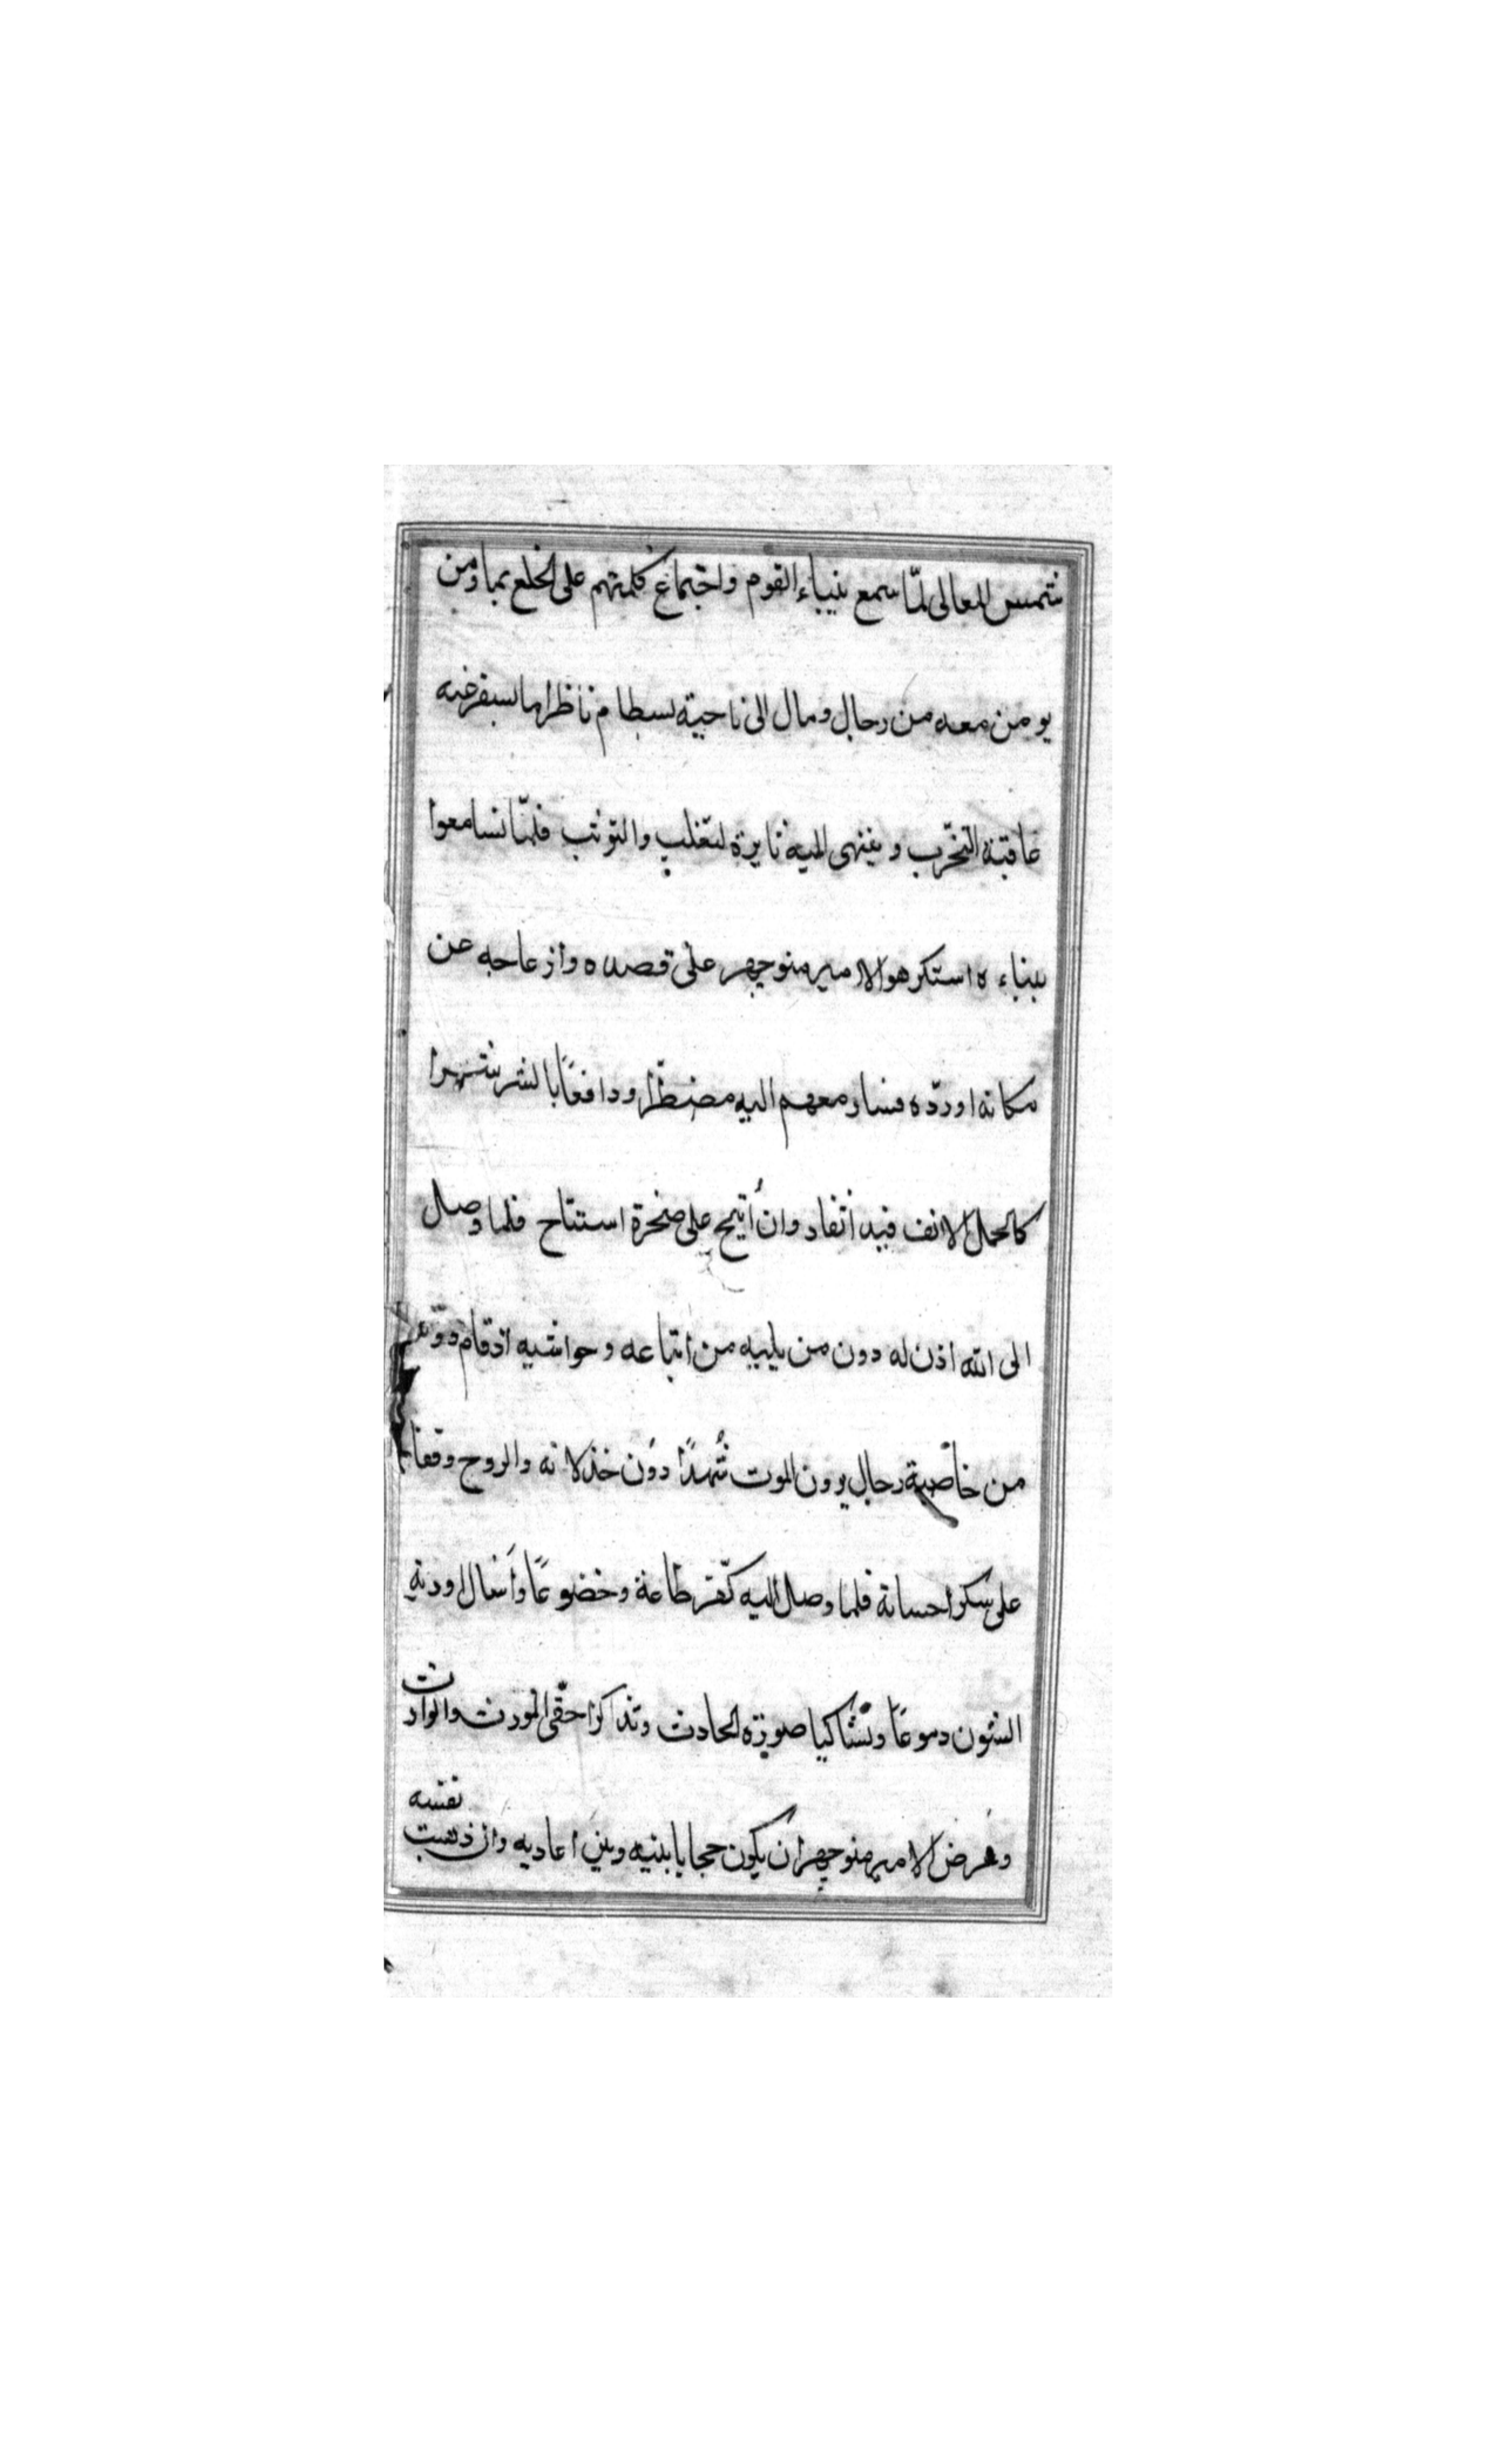 شمس المعالى لمّا سمع بنباء القوم واجتماع كلمتهم على الخلع بما ومن
يومن معه من رحال ومال الى ناحية بسطام ناظرا ما سيفر عنه
عاقبة التحزب و ينهى اليه نايرة لتغلب والتوثب فلمّا تسامعوا
ببناء ه استكرهوا الامير منوچهر على قصده وازعاحه عن
مكانه اوردّه فسار معهم اليه مضطرّا ودافعًا بالشر شرا
كالجمال الانف قيد انفاد وان أنيح على صخرة استناح فلما وصل
الى الله اذن له دون من يليه من اتباعه وحواشيه اذ قام دونه
من خاصية رحال يرون الموت شُهدًا دون خذلانه والروح وقفا
على سكر احسانة فلما وصل اليه كفّر طاعة وخضوعًا وأسال اودية
الشون دموعًا وتشاكيا صورة الحادث وتذاكرا حقى المورث والوارث
وعرض الامير منوچهر ان يكون حجابا بنيه وبين اعاديه وان ذهبت نفسه